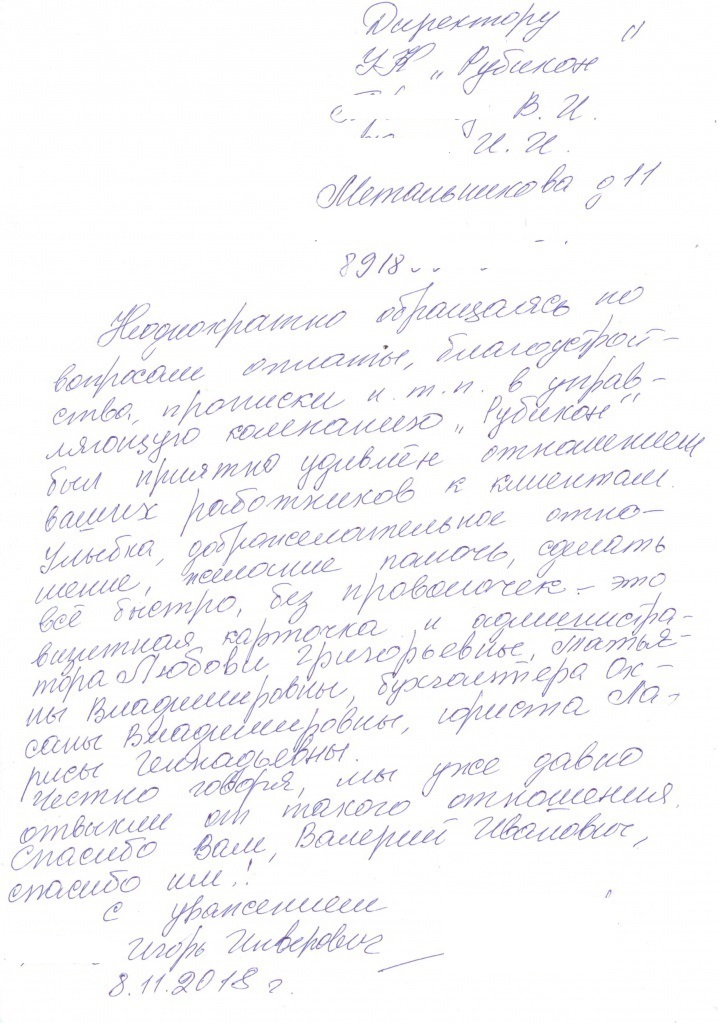 Директору
УК „Рубикон"
В. И.
И. И.
Метальникова д 11
8918
Неоднократно обращаясь по
вопросам оплаты, благоустрой-
ства, прописки и.т.п. в управ-
ляющую компанию „Рубикон"
был приятно удивлён отношением
ваших работников к клиентам.
Улыбка, доброжелательное отно-
шение, желание помочь, сделать
всё быстро, без проволочек – это
визитная карточка и администра-
тора Любови Григорьевны, Татья-
ны Владимировны, бухгалтера Ок-
саны Владимировны, юриста Ла-
рисы Геннадьевны.
Честно говоря, мы уже давно
отвыкли от такого отношения.
Спасибо Вам, Валерий Иванович,
спасибо им!
С уважением
Игорь
8.11.2018 г.